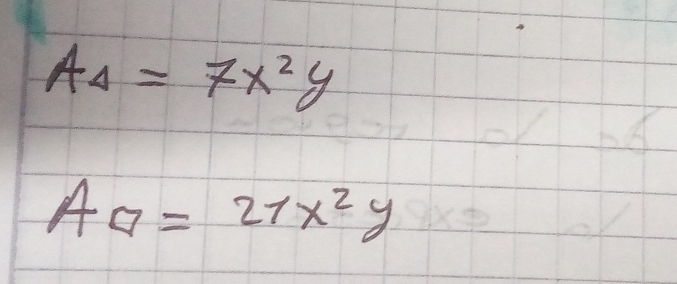 A△ = 7x²y
A□ = 21x²y